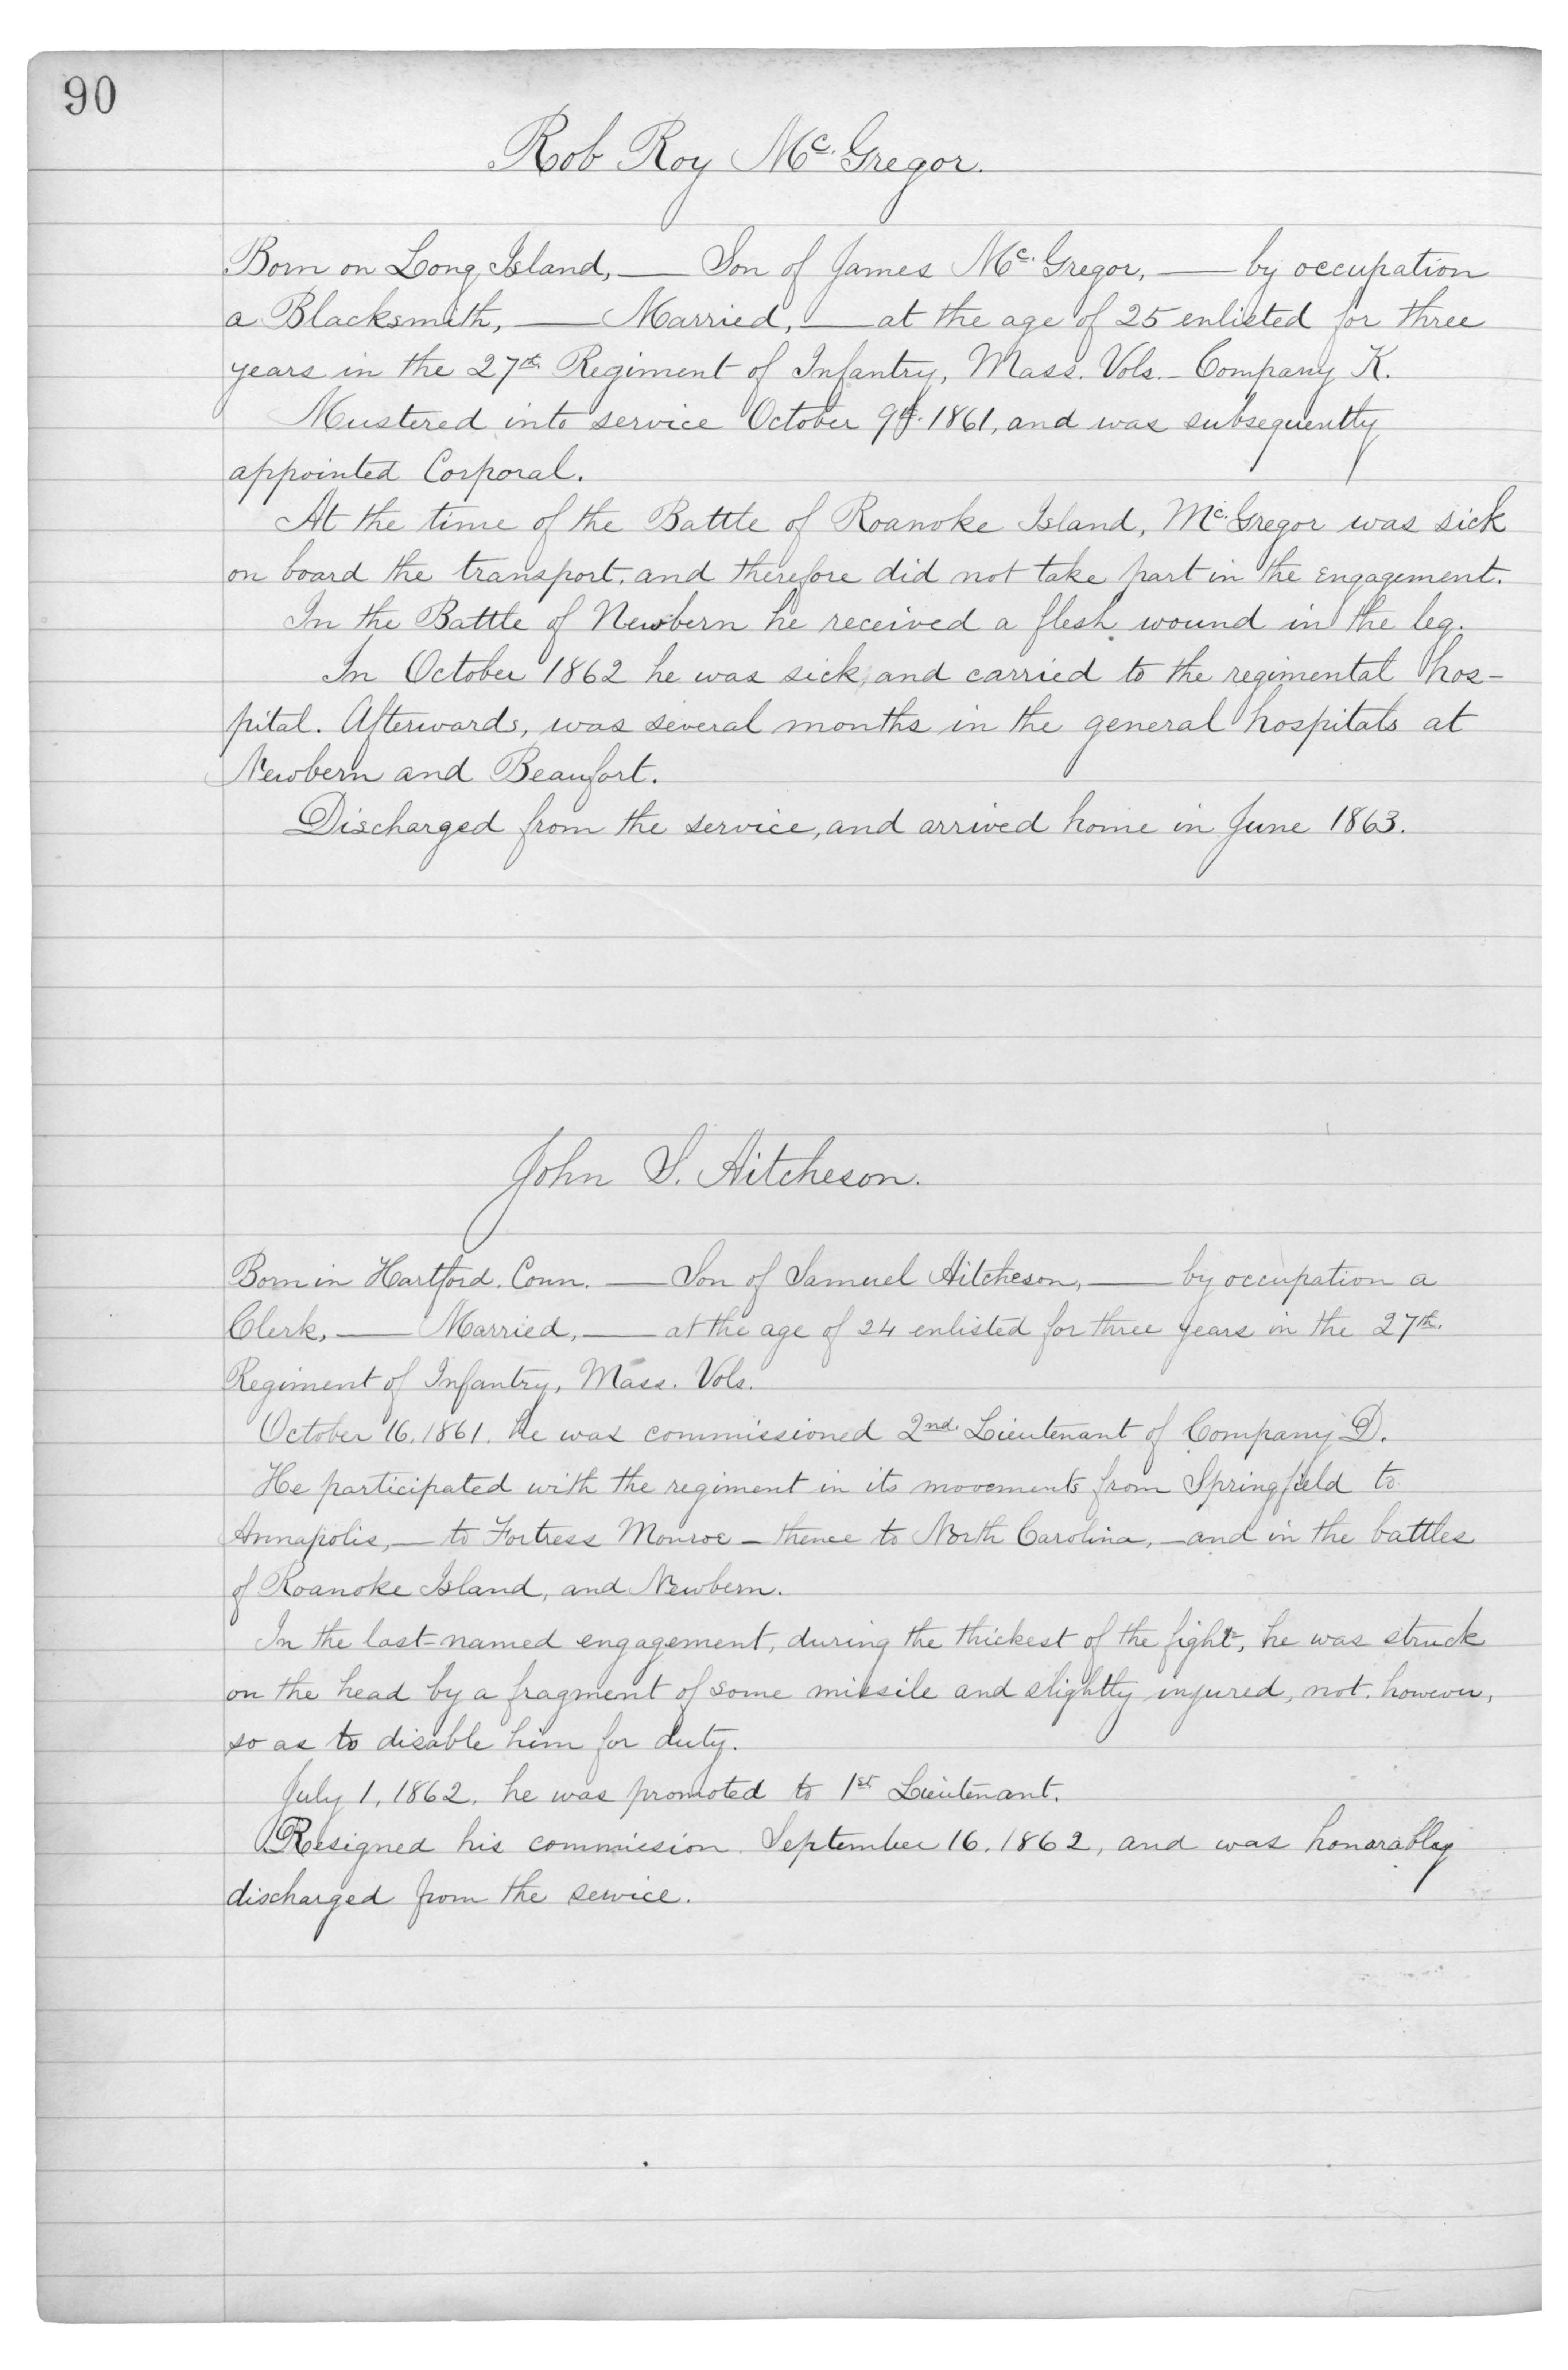 90
Rob Roy Mc. Gregor.
Born on Long Island, — Son of James Mc. Gregor, — by occupation
a Blacksmith, — Married, — at the age of 25 enlisted for three
years in the 27th Regiment of Infantry, Mass. Vols. - Company K.
Mustered into service October 9th. 1861, and was subsequently
appointed Corporal.
At the time of the Battle of Roanoke Island, Mc. Gregor was sick
on board the transport, and therefore did not take part in the engagement.
In the Battle of Newbern he received a flesh wound in the leg.
In October 1862 he was sick, and carried to the regimental hos-
pital. Afterwards, was several months in the general hospitals at
Newbern and Beaufort.
Discharged from the service, and arrived home in June 1863.
John S. Aitcheson.
Born in Hartford, Conn. — Son of Samuel Aitcheson, — by occupation a
Clerk, — Married, — at the age of 24 enlisted for three years in the 27th.
Regiment of Infantry, Mass. Vols.
October 16, 1861. he was commissioned 2nd. Lieutenant of Company D.
He participated with the regiment in its movements from Springfield to
Annapolis, — to Fortress Monroe — thence to North Carolina, — and in the battles
of Roanoke Island, and Newbern.
In the last-named engagement, during the thickest of the fight, he was struck
on the head by a fragment of some missile and slightly injured, not, however,
so as to disable him for duty.
July 1, 1862, he was promoted to 1st Lieutenant.
Resigned his commission September 16, 1862, and was honorably
discharged from the service.